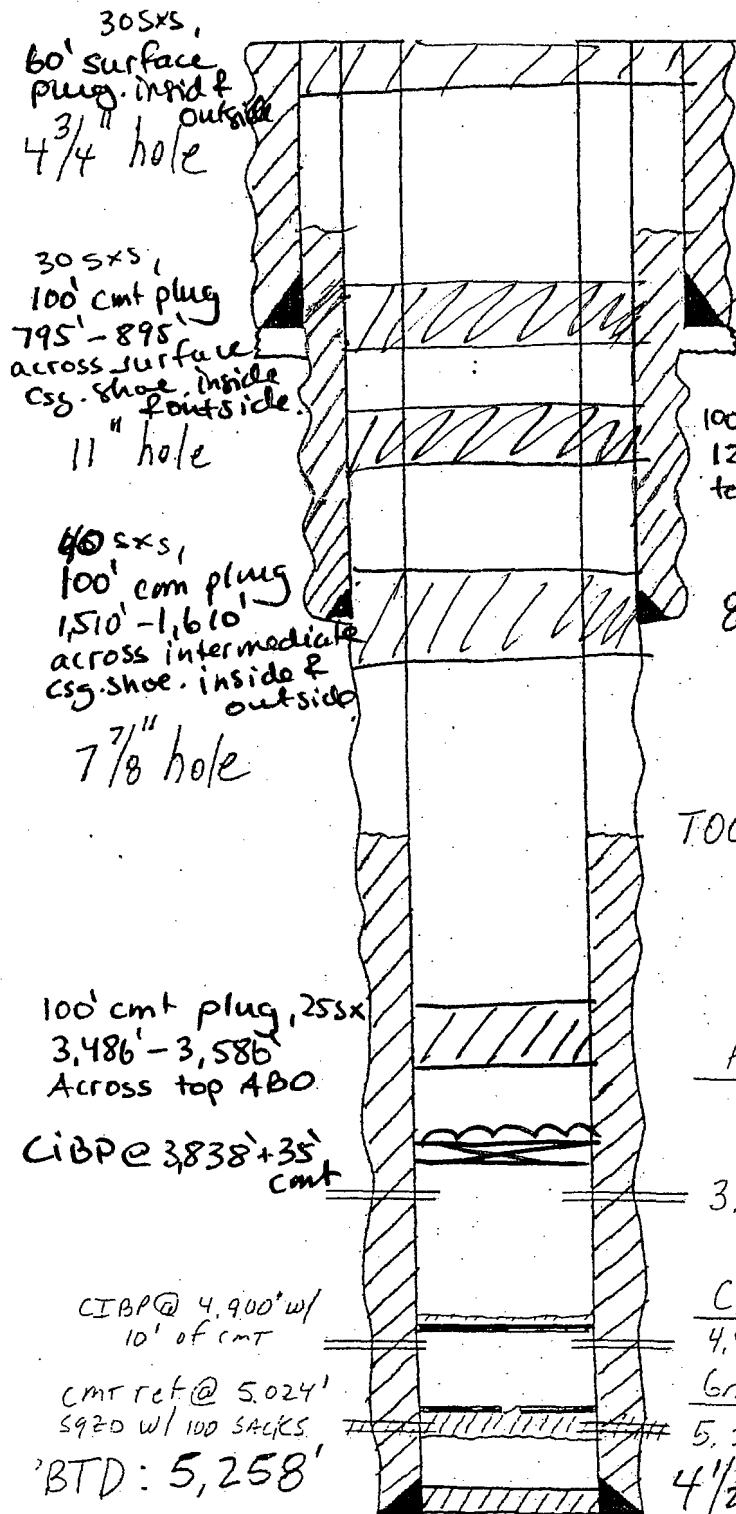 30 sxs,
60' surface
plug. insid &
outside
4 3/4" hole
30 sxs,
100' cmt plug
795' - 895'
across surface
csg. shoe. inside
& outside.
11" hole
sxs,
100' cem plug
1,510' - 1,610'
across intermediate
csg. shoe. inside &
outside
7 7/8" hole
100' cmt plug, 25sx
3,486' - 3,586'
Across top ABO
CiBP @ 3,838' + 35'
cmt
CIBP @ 4,900' w/
10' of cmT
cmT ret @ 5.024'
SQZD w/ 100 SACKS
BTD: 5,258'
100
12
to
8
TOC
3,
C
4,
Gr
5,
4 1/2